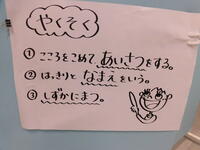 やくそく
① こころをこめて、あいさつをする。
② はっきりと なまえをいう。
③ しずかにまつ。